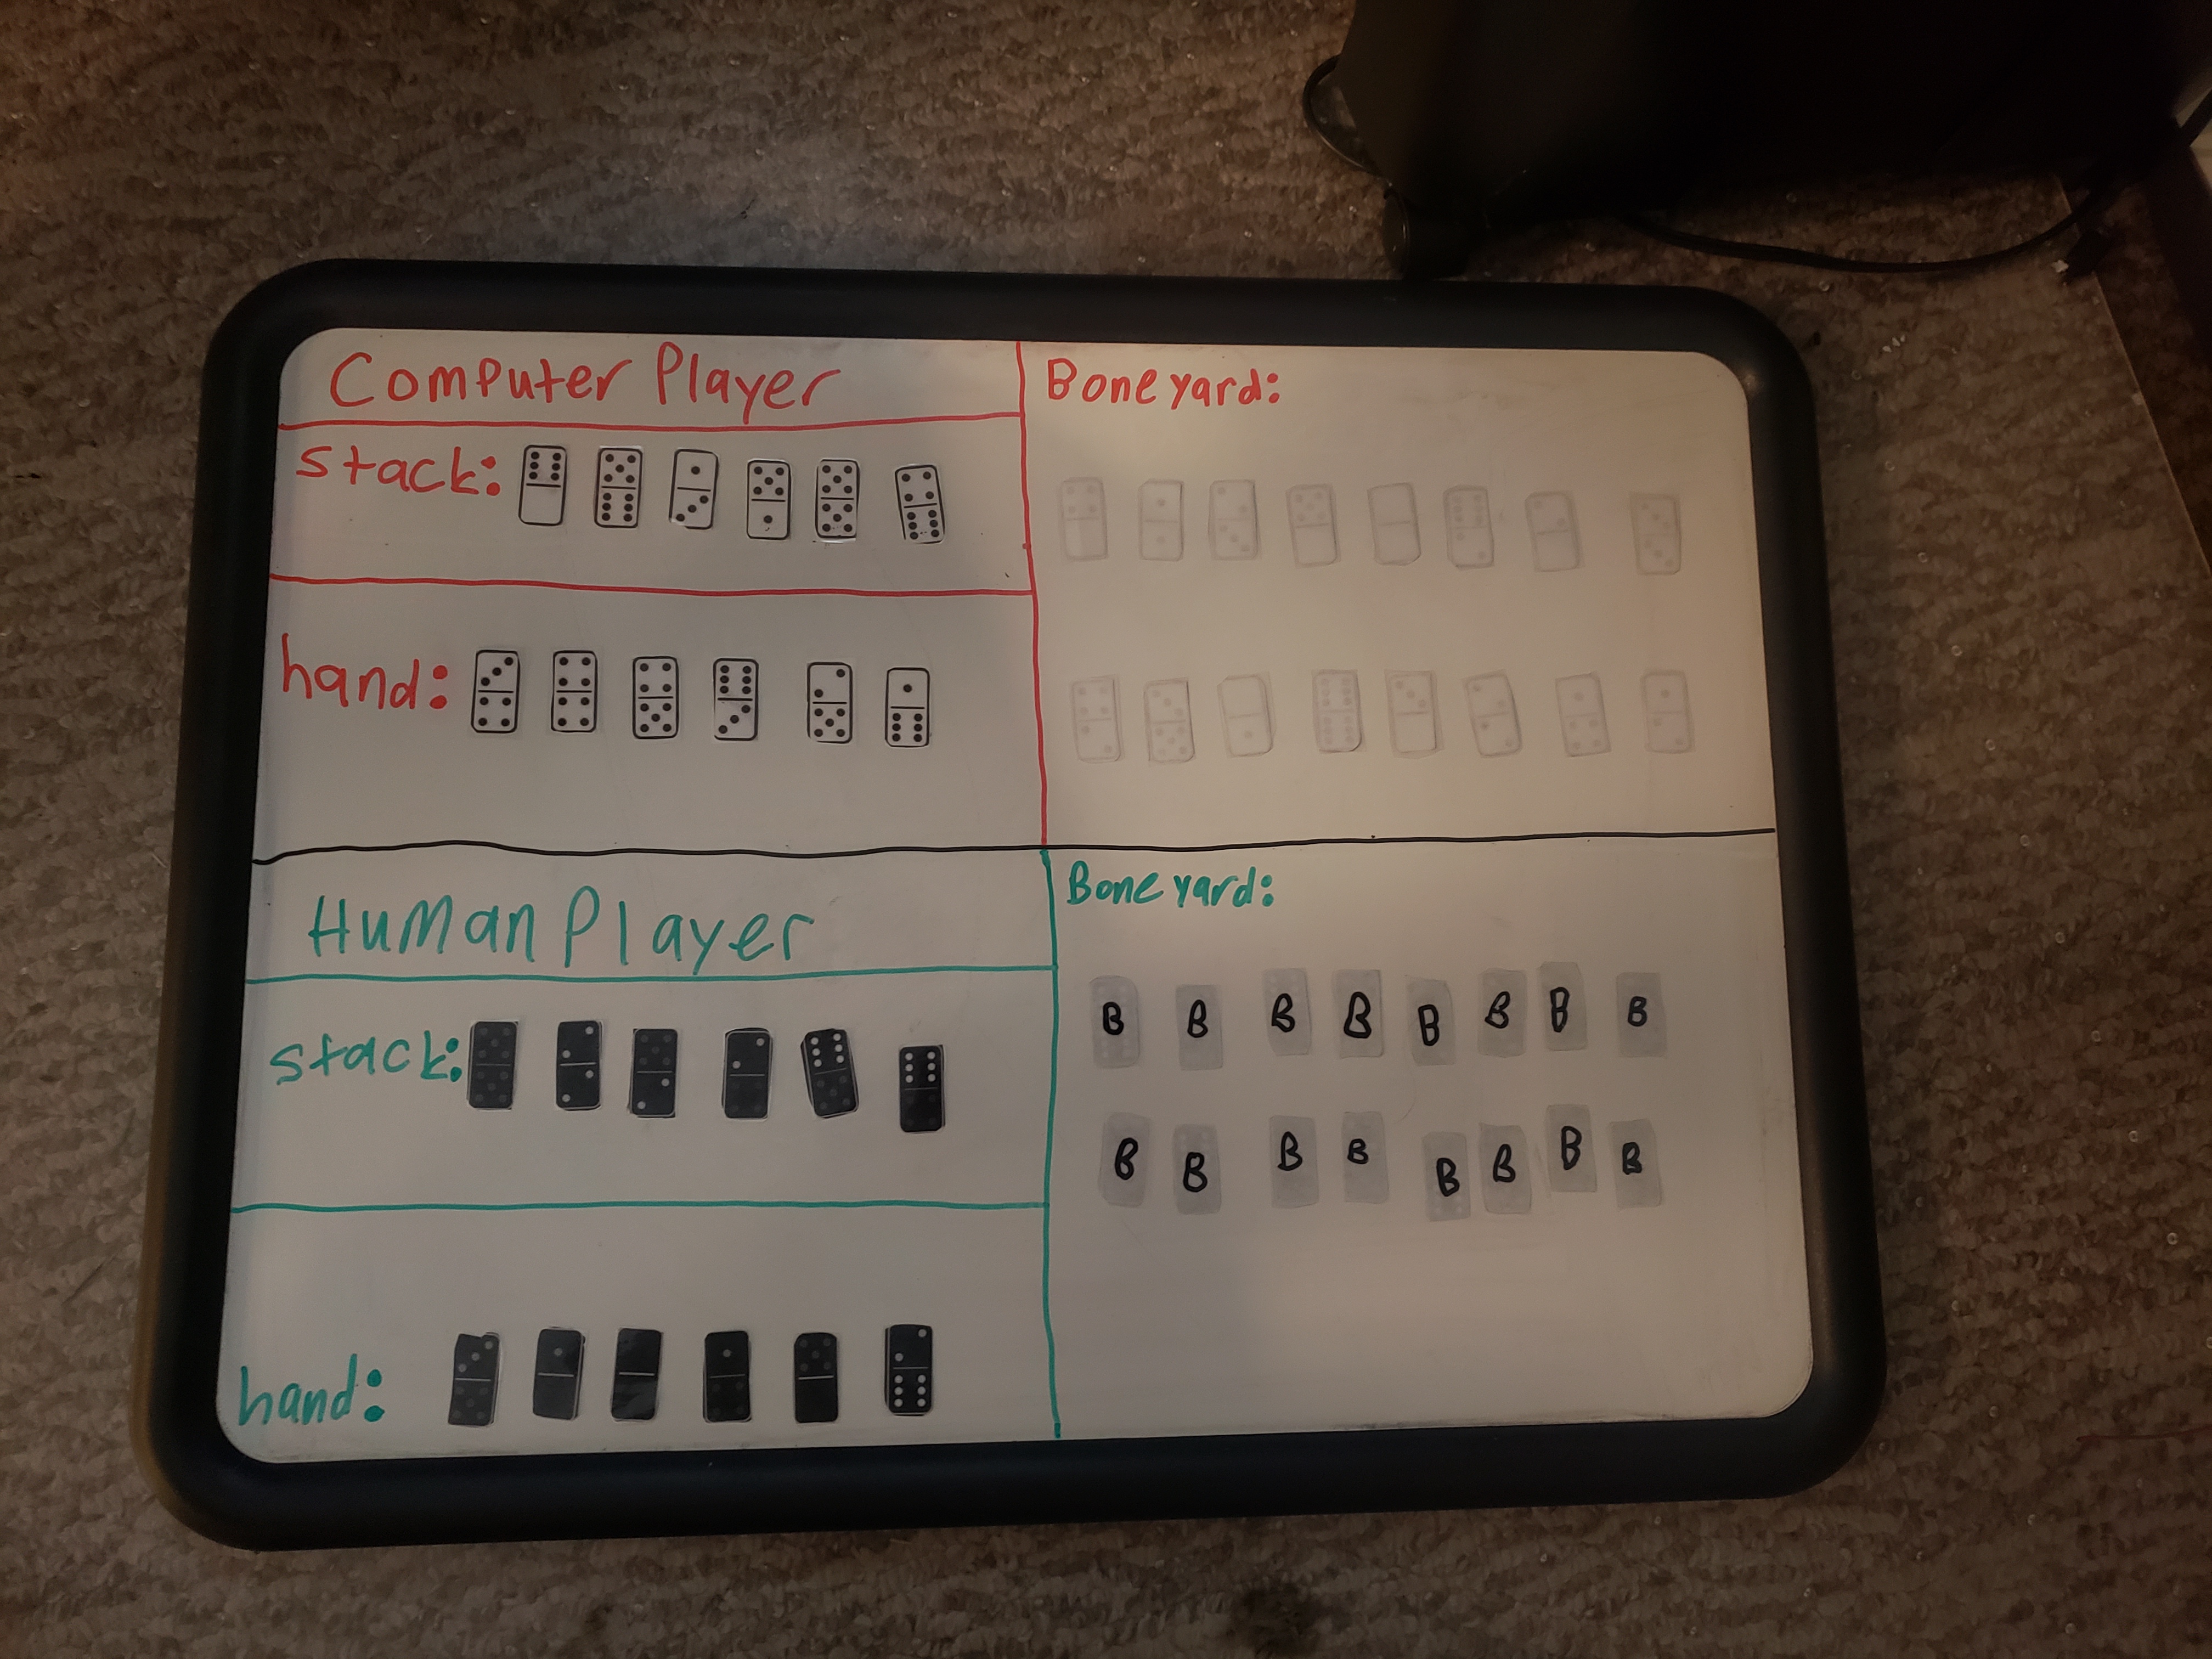 Computer Player
stack:
hand:
Boneyard:
Human Player
stack:
hand:
Boneyard:
B B B B B B B B
B B B B B B B B